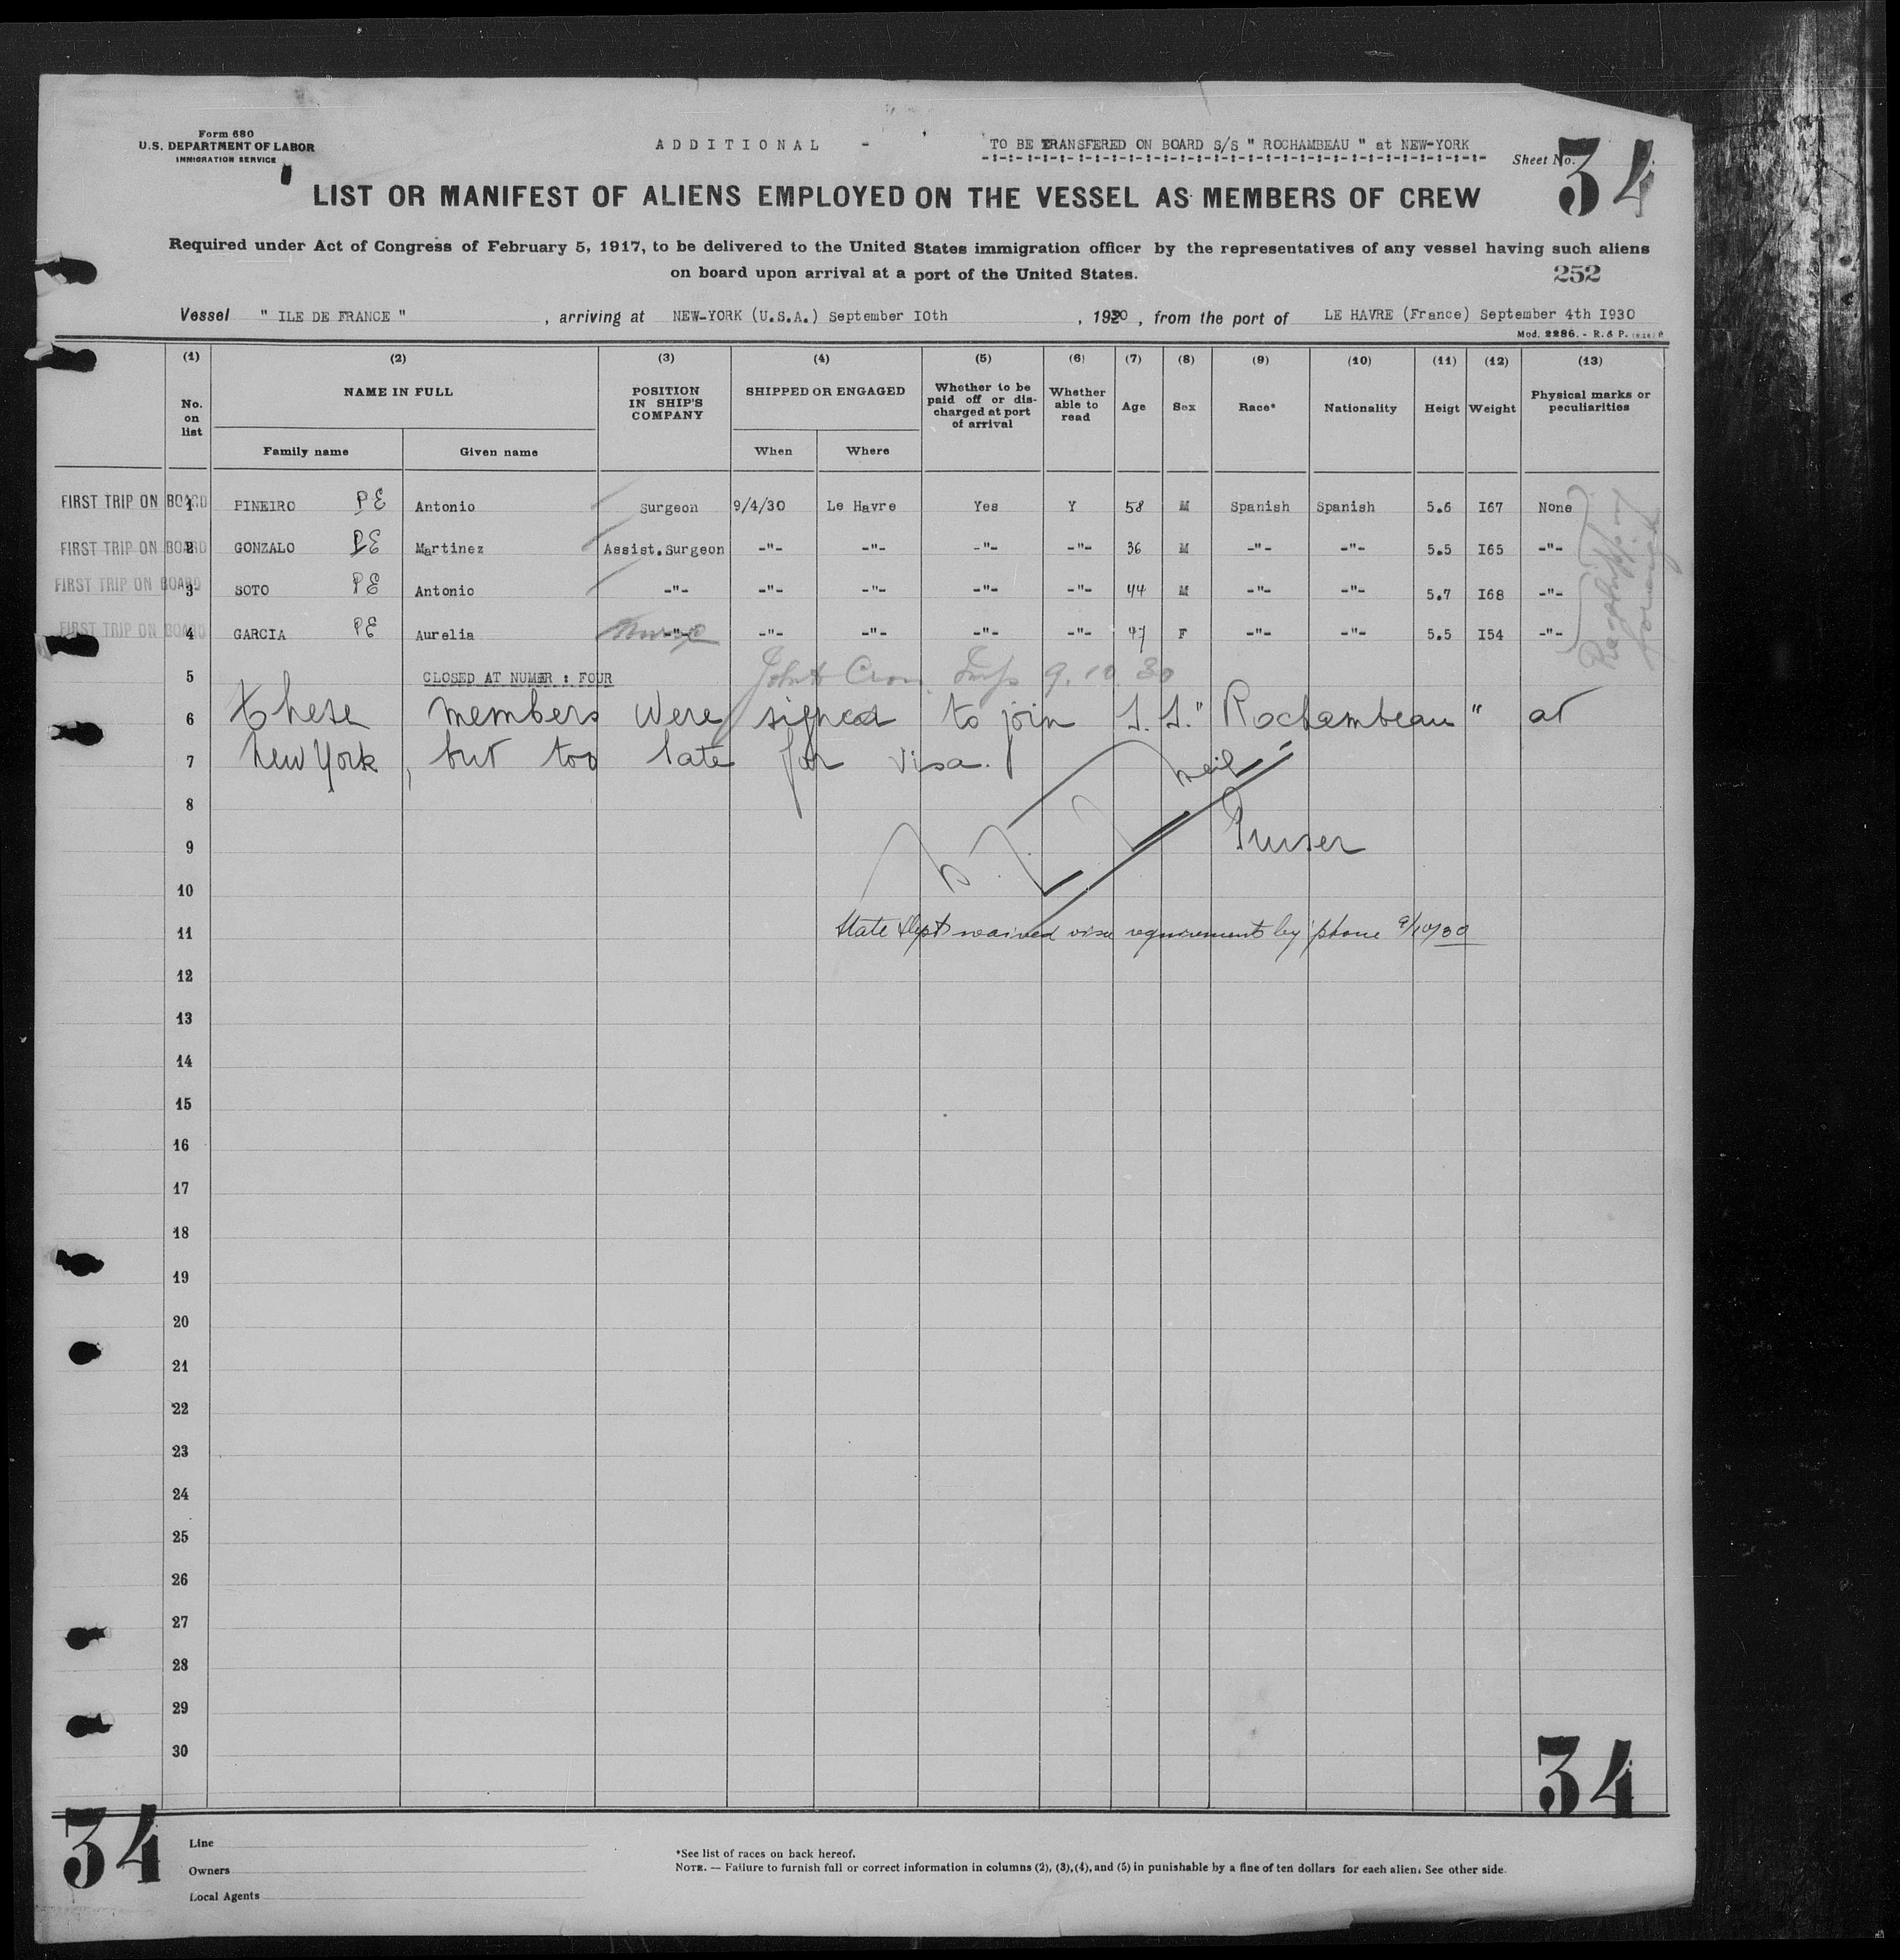 Form 680
U.S. DEPARTMENT OF LABOR
IMMIGRATION SERVICE
ADDITIONAL -
TO BE TRANSFERED ON BOARD S/S " ROCHAMBEAU " at NEW-YORK
Sheet No. 34
LIST OR MANIFEST OF ALIENS EMPLOYED ON THE VESSEL AS MEMBERS OF CREW
Required under Act of Congress of February 5, 1917, to be delivered to the United States immigration officer by the representatives of any vessel having such aliens
on board upon arrival at a port of the United States.
252
Vessel " ILE DE FRANCE " , arriving at NEW-YORK (U.S.A.) September I0th , 1930 , from the port of LE HAVRE (France) September 4th I930
Mod. 2286. - R. & P.
(1) (2) (3) (4) (5) (6) (7) (8) (9) (10) (11) (12) (13)
No. on list NAME IN FULL POSITION IN SHIP'S COMPANY SHIPPED OR ENGAGED Whether to be paid off or dis-charged at port of arrival Whether able to read Age Sex Race* Nationality Heigt Weight Physical marks or peculiarities
Family name Given name When Where
FIRST TRIP ON BOARD 1 PINEIRO PE Antonio Surgeon 9/4/30 Le Havre Yes Y 58 M Spanish Spanish 5.6 I67 None
FIRST TRIP ON BOARD 2 GONZALO PE Martinez Assist.Surgeon -"- -"- -"- -"- 36 M -"- -"- 5.5 I65 -"-
FIRST TRIP ON BOARD 3 SOTO PE Antonio -"- -"- -"- -"- -"- 44 M -"- -"- 5.7 I68 -"-
FIRST TRIP ON BOARD 4 GARCIA PE Aurelia -"- Nurse -"- -"- -"- -"- 47 F -"- -"- 5.5 I54 -"-
Reshipping foreign
5 CLOSED AT NUMER : FOUR
John Insp 9.10.30
6 these members were signed to join S.S." Rochambeau " at
7 New York, but too late for visa.
8
9 Purser
10
11 State Dept waived visa requirements by 'phone 9/10/30
12
13
14
15
16
17
18
19
20
21
22
23
24
25
26
27
28
29
30
34
34
Line
Owners
Local Agents
*See list of races on back hereof.
NOTE. — Failure to furnish full or correct information in columns (2), (3), (4), and (5) in punishable by a fine of ten dollars for each alien. See other side.